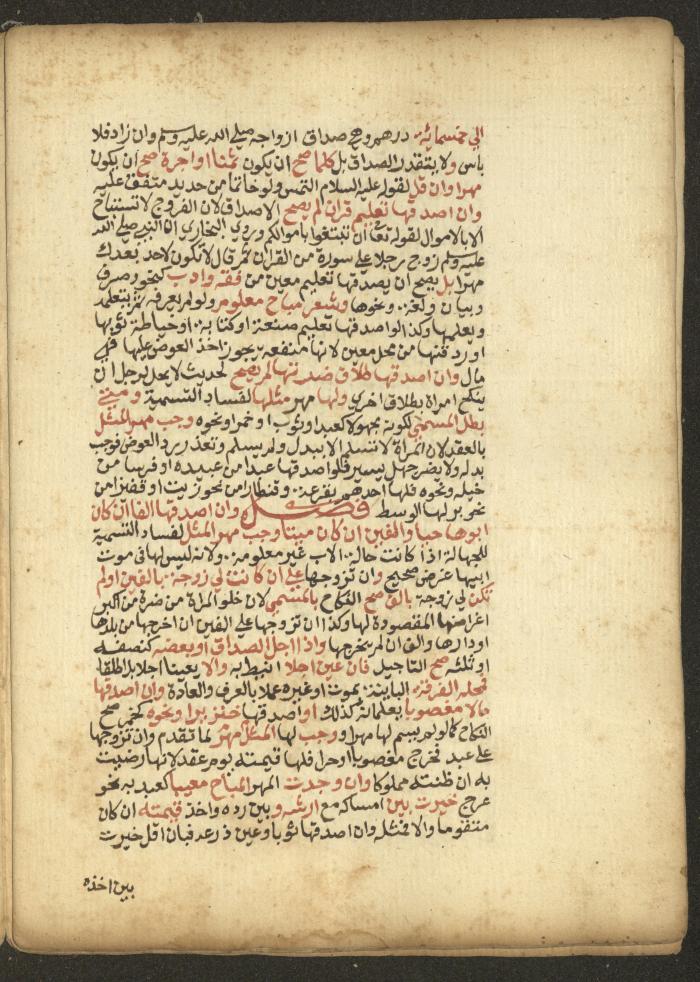 الي خمسمائة درهم وهي صداق ازواجه صلي الله عليه وسلم وان زاد فلا
باس ولا يتقدر الصداق بل كلما صح ان يكون ثمنا او اجرة صح ان يكون
مهرا وان قل لقوله عليه السلام التمس ولو خاتما من حديد متفق عليه
وان اصدقها تعليم قران لم يصح الاصداق لان الفروج لا تستباح
الا بالاموال لقوله تعا ان تبتغوا باموالكم وروي البخاري ان النبي صلي الله
عليه وسلم زوج رجلا علي سورة من القران ثم قال لا تكون لاحد بعدك
مهرا بل يصح ان يصدقها تعليم معين من فقه وادب كنحو وصرف
وبيان ولغة ونحوها وشعر مباح معلوم ولو لم يعرفه ثم يتعلمه
ويعلمها وكذا لو اصدقها تعليم صنعة او كتابة او خياطة ثوبها
او رد قنها من محل معين لانها منفعة يجوز اخذ العوض عليها فهي
مال وان اصدقها طلاق ضرتها لم يصح لحديث لا يحل لرجل ان
ينكح امراة بطلاق اخري ولها مهر مثلها لفساد التسمية ومتي
بطل المسمي لكونه مجهولا كعبد او ثوب او خمر او نحوه وجب مهر المثل
بالعقد لان المراة لا تسلم الا ببدل ولم يسلم وتعذر رد العوض فوجب
بدله ولا يضر جهل يسير فلو اصدقها عبدا من عبيده او فرسا من
خيله ونحوه فلها احدهم بقرعة وقنطارا من نحو زيت او قفيزا من
نحو بر لها الوسط فصل وان اصدقها الفا ان كان
ابوها حيا والفين ان كان ميتا وجب مهر المثل لفساد التسمية
للجهالة اذا كانت حالة الاب غير معلومة ولانه ليس لها في موت
ابيها غرض صحيح وان تزوجها علي ان كانت لي زوجة بالفين او لم
تكن لي زوجة بالف صح النكاح بالمسمي لان خلو المراة من ضرة من اكبر
اغراضها المقصودة لها وكذا ان تزوجها علي الفين ان اخرجها من بلدها
او دارها والف ان لم يخرجها واذا اجل الصداق او بعضه كنصفه
او ثلثه صح التاجيل فان عين اجلا انيط به والا يعينا اجلا بل اطلقا
فمحله الفرقة الباينة بموت او غيره عملا بالعرف والعادة وان اصدقها
مالا مغصوبا يعلمانه كذلك او اصدقها خنزيرا ونحوه كخمر صح
النكاح كما لو لم يسم لها مهرا ووجب لها المثل مهر لما تقدم وان تزوجها
علي عبد فخرج مغصوبا او حرا فلها قيمته يوم عقد لانها رضيت
به ان ظنته مملوكا وان وجدت المهر المباح معيبا كعبد به نحو
عرج خيرت بين امساكه مع ارشه وبين رده واخذ قيمته ان كان
متقوما والا فمثله وان اصدقها ثوبا وعين ذرعه فبان اقل خيرت
بين اخذه